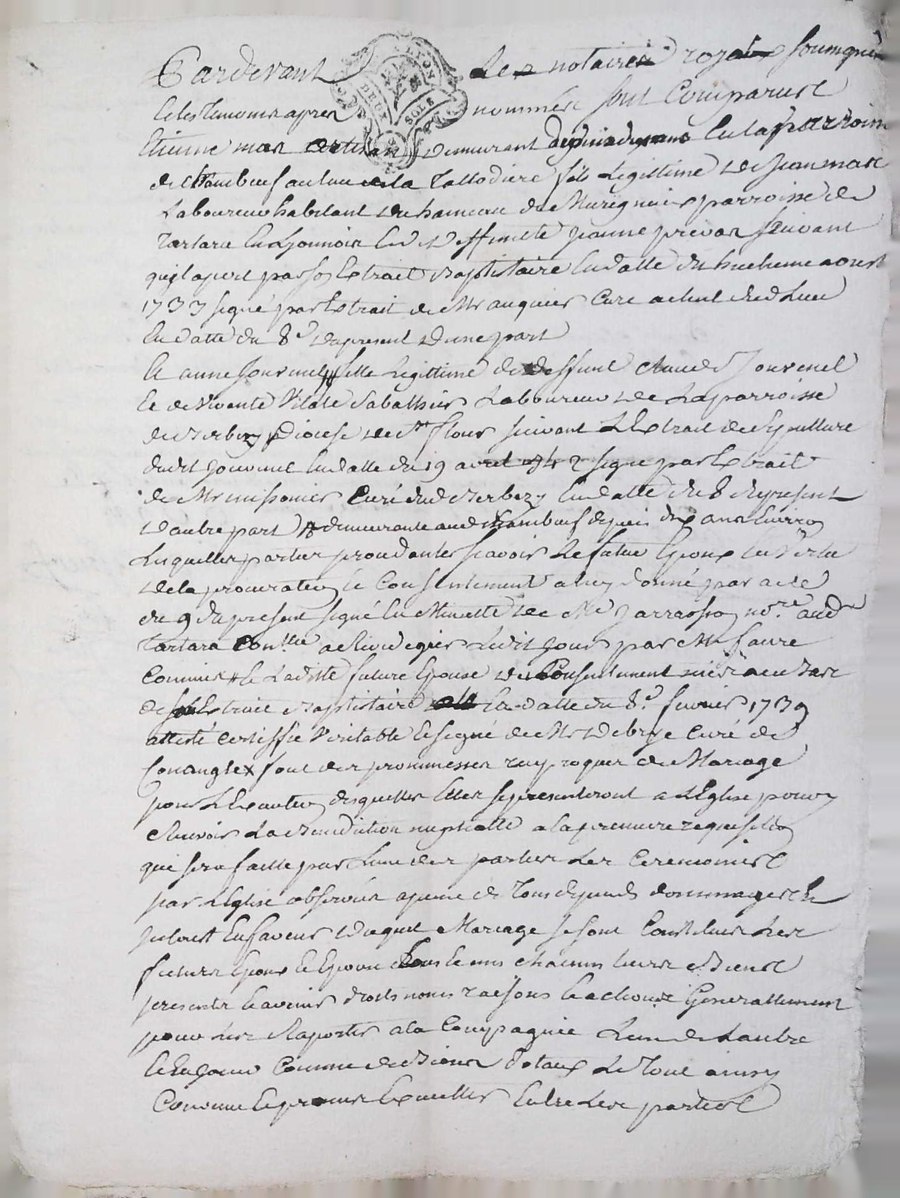 Pardevant Le notaire royal soumsigné
et les temoins apres nommés sont Comparus
Etienne mar artisan demeurant en la parroisse
de Chambeuf au lieu de la fils Legittime de Jean mar
Laboureur habitant du hameau de parroisse de
Tartara en Lyonnois Et de deffunte Jeanne prevar suivant
quil apert par son Extrait Baptistaire en datte du huitieme aoust
1733 signé par Extrait de Mr auquier Curé actuel dud Lieu
En datte du 8e du present d'une part
Et anne Jouvenel fille Legittime de deffunt Claude Jouvenel
Et de vivante Sabathier Laboureur de La parroisse
de Diocese de St flour suivant L'Extrait de sepulture
dudit Jouvenel en datte du 19 avril signé par Extrait
de Mr Curé dud en datte du 8 du present
d'autre part demeurante aud Chambeuf depuis dix ans Environ
Lesquelles parties proceddantes scavoir Le futur Epoux en vertu
de la procuration et Consentement a luy donné par acte
du 9 du present signé en Minutte de Me jarrosson nore aud
Tartara Conlle a Rivedegier Ledit Jour par Mr faure
Commis et La ditte future Epouse du Consentement
de Extrait Baptistaire en datte du 8e fevrier 1739
attesté certiffié Veritable et signé de Mr Debrye curé de
Connangle font des prommesses reciproques de Mariage
pour L'Execution desquelles Elles se presenteront a L'Eglise pour y
Recevoir La Benediction nuptialle a la premiere requisition
qui sera faitte par L'une des parties Les Ceremonies
par L'Eglise observées a peine de tous depends dommages et
Interest En faveur duquel Mariage se sont Constitués Les
futurs Epoux et Epouse tous et uns chacuns leurs Biens
presents et avenir droits noms raisons et actions Generallement
pour Les Raporter a la Compagnie L'un de L'autre
et En Jouir Comme de Biens Dotaux Le Tout ainsy
Convenu Entre Les parties
DEUX SOLS